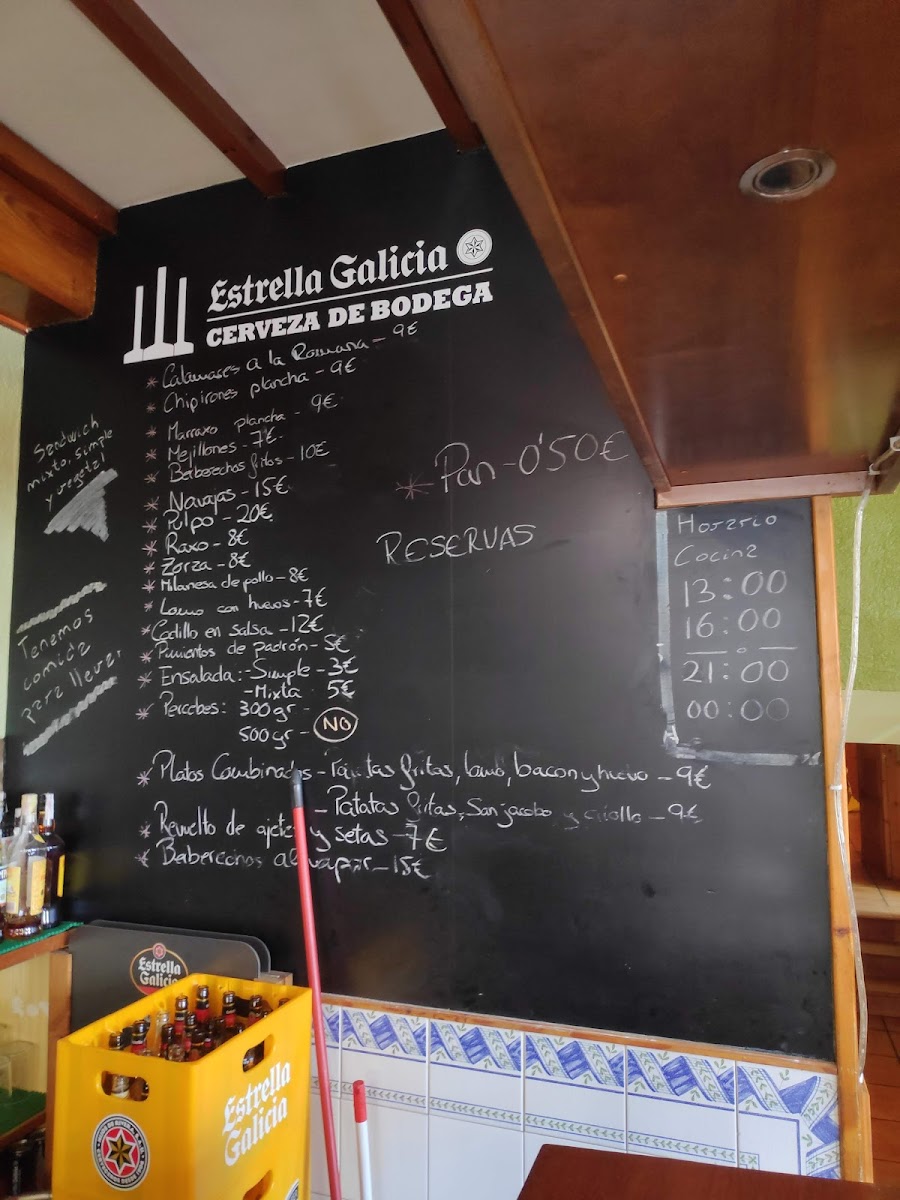 Estrella Galicia
CERVEZA DE BODEGA
* Calamares a la Romana - 9€
* Chipirones plancha - 9€
* Marraxo plancha - 9€
* Mejillones - 7€
* Berberechos fritos - 10€
* Navajas - 15€
* Pulpo - 20€
* Raxo - 8€
* Zorza - 8€
* Milanesa de pollo - 8€
* Lomo con huevos - 7€
* Codillo en salsa - 12€
* Pimientos de padrón - 5€
* Ensalada: - Simple - 3€
- Mixta 5€
* Percebes: 300gr -
500gr - NO
* Platos Combinados - Patatas fritas, lomo, bacon y huevo - 9€
- Patatas fritas, San jacobo y criollo - 9€
* Revuelto de ajetes y setas - 7€
* Berberechos al vapor - 15€
Sandwich
mixto, simple
y vegetal
Tenemos
comida
para llevar
* Pan - 0'50€
RESERVAS
Horario
Cocina
13:00
16:00
21:00
00:00
Estrella
Galicia
Estrella
Galicia